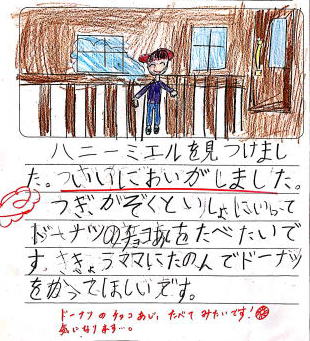 ハニーミエルを見つけまし
た。ついいにおいがしました。
つぎ、かぞくといっしょにいって
ドーナツのチョコあじをたべたいで
す。ママにたのんでドーナツ
をかってほしいです。
ドーナツのチョコあじ、たべてみたいです!
気になります…。